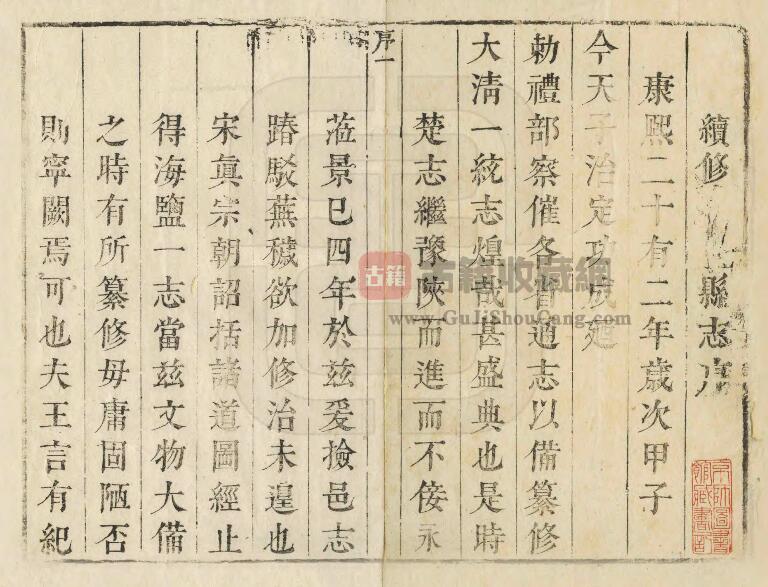 續修縣志序
康熙二十有二年歲次甲子
今天子治定功成廼
勅禮部察催各省通志以備纂修
大淸一統志煌哉甚盛典也是時
楚志繼豫陝而進而不佞永
序一
蒞景已四年於茲爰撿邑志
踳駁蕪穢欲加修治未遑也
宋眞宗朝詔括諸道圖經止
得海鹽一志當茲文物大備
之時有所纂修毋庸固陋否
則寜闕焉可也夫王言有紀
京師圖書
館藏書印
古籍
古籍收藏網
www.GuJiShouCang.com